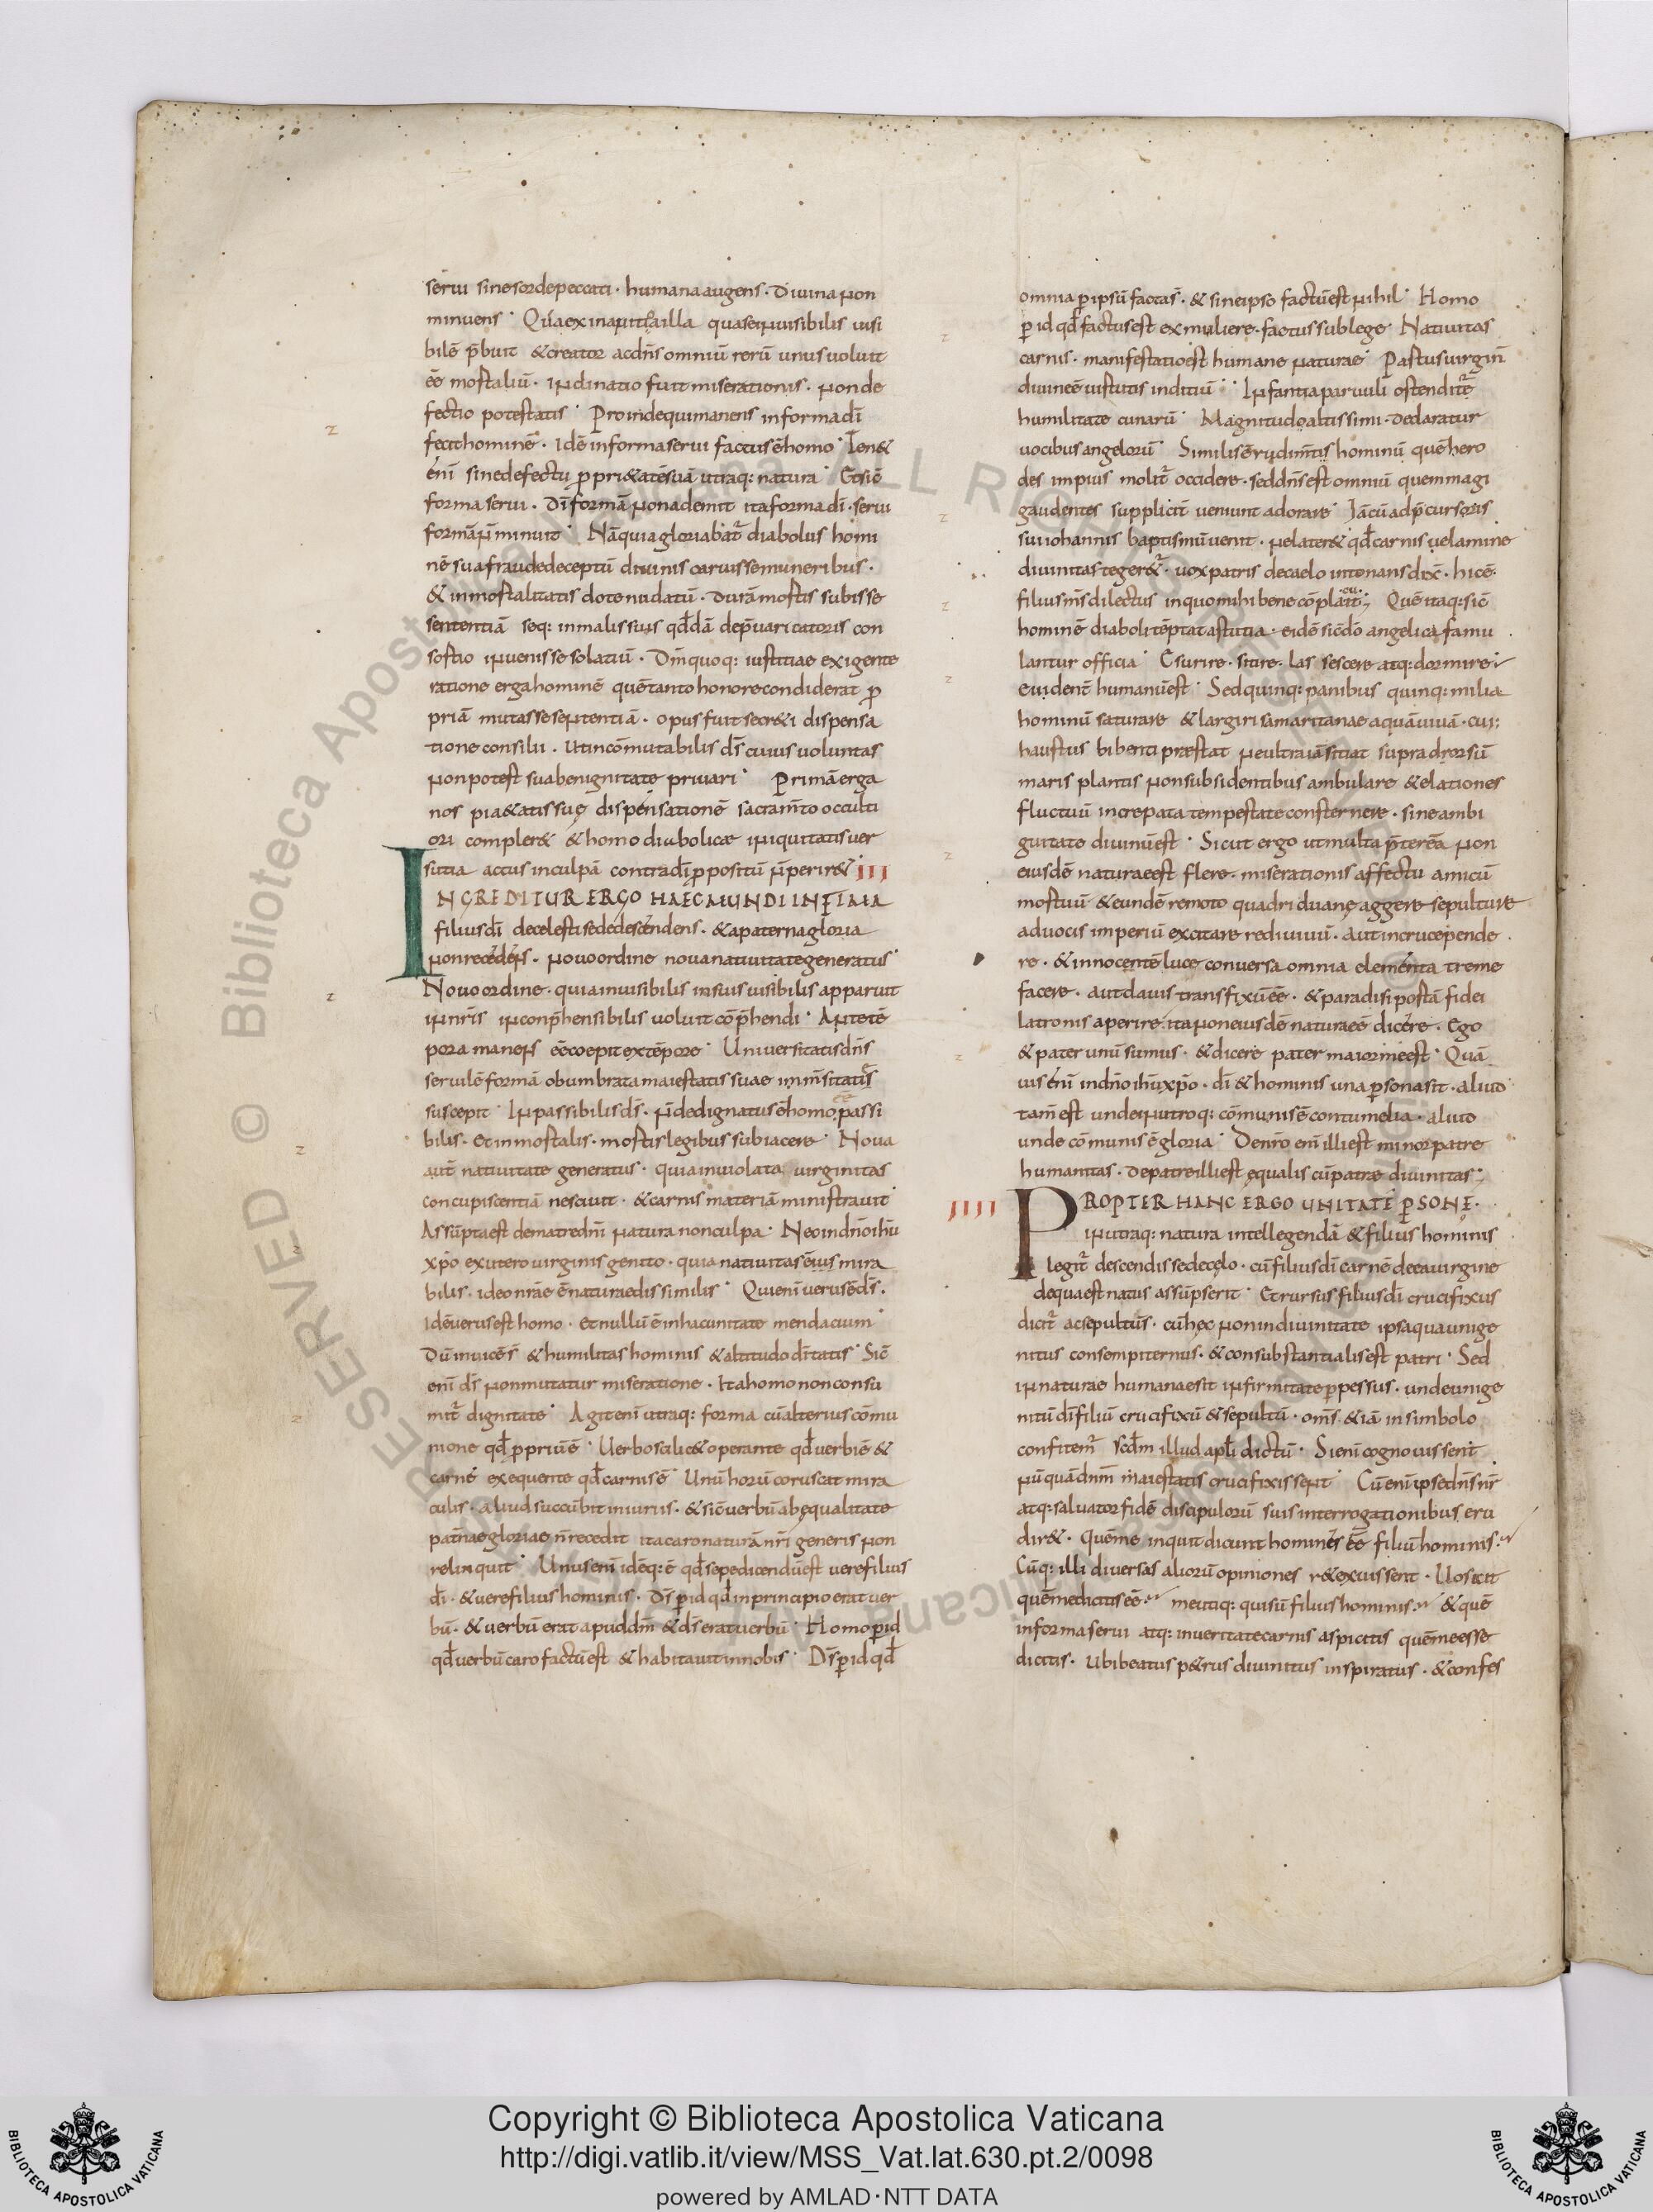 serui sinesordepeccati · humanaaugens · Diuinanon
minuens · Quia exinanitio illa quaseinuisibilis uisi
bilē p̄buit &creator acdn̄s omniū rerū unusuoluit
eē mortaliū · Inclinatio fuit miserationis · non de
fectio potestatis · Proindequimanens informadī
fecithominē · Idē informaserui factusēhomo · Ten&
enī sinedefectu ppri&atēsuā utraq: natura · Etsic̄
formaserui · Dī formā nonademit itaformadī · serui
formān̄ minuit · Nāquiagloriabat̄ diabolus homi
nē suafraudedeceptū diuinis caruissemuneribus ·
& inmortalitatis dotenudatū · Durā mortis subisse
sententiā seq: inmalissuis qd̄dā dep̄uaricatoris con
sortio inuenissesolatiū · Dm̄quoq: iustitiae exigente
ratione ergahominē quētantohonorecondiderat p
priā mutassesententiā · opus fuit secr&i dispensa
tioneconsilii · Utincōmutabilis ds̄ cuius uoluntas
nonpotest suabenignitate priuari · Primāerga
nos pia&atis suę dispensationē sacram̄to occulti
ori compler& & homo diabolicae iniquitatis uer
sutia actus inculpā contradī ppositū n̄perir& · III
INGREDITUR ERGO HAEC MUNDI INFIMA
filiusdī decelestisededescendens · & apaternagloria
nonrecedens · nouoordine nouanatiuitategeneratus ·
Nouoordine · quiainuisibilis insuisuisibilis apparuit
innr̄is inconp̄hensibilis uoluit cōp̄hendi · Antetē
pora manens eēcoepit extēpore · Uniuersitatisdn̄s
seruilēformā obumbratamaiestatis suae inmn̄sitate
suscepit · Inpassibilisds̄ · n̄dedignatusēhomo passi
bilis · Et inmortalis · mortislegibus subiacere · Noua
aut̄ natiuitate generatus · quiainuiolata uirginitas
concupiscentiā nesciuit · &carnis materiā ministrauit
Assūptaest dematredn̄i natura nonculpa · Necindn̄oihū
xp̄o exuterouirginis genito · quia natiuitasēius mira
bilis · ideonrāe ēnaturaedissimilis · Quienī uerusēds̄ ·
Idēuerusest homo · Et nullū ē inhacunitate mendacium
Dū inuicēs̄ & humilitas hominis & altitudo dītatis · Sic̄
enī ds̄ nonmutatur miseratione · Itahomononconsu
mit̄ dignitate · Agitenī utraq: forma cūalteriuscōmu
nione qd̄ ppriūē · Uerboscilic& operante qd̄uerbiē &
carne exequente qd̄carnisē · Unū horū coruscat mira
culis · aliudsuccūbit iniuriis · &sic̄uerbūabęqualitate
patn̄aegloriae n̄recedit itacaronaturānrī generis non
relinquit · Unusenī idēq:ē qd̄sepedicendūest uerefilius
dī · &uerefilius hominis · Ds̄ pidqd̄ inprincipioerat uer
bū · & uerbū erat apuddm̄ &ds̄ erat uerbū · Homo pid
qd̄uerbū caro factūest & habitauitinnobis · Ds̄ pidqd̄
omnia pipsū facta s̄ · & sineipso factūest nihil · Homo
p id qd̄ factusest exmuliere · factus sublege · Natiuitas
carnis · manifestatioest humane naturae · Partusuirgin̄
diuineēuirtutis inditiū · Infantia paruuli ostendit̄
humilitate cunarū · Magnitudoaltissimi · declaratur
uocibus angelorū · Similisērudim̄tis hominū quēhero
des impius molit̄ occidere · seddn̄sest omniū quemmagi
gaudentes suppliciť ueniunt adorare · Iācūadp̄cursoris
sui iohannis baptismū uenit · nelater& qd̄carnis uelamine
diuinitas teger&̄ · uox patris decaelo intonans dix̄ · hicē
filiusm̄s dilectus inquomihi bene cōplacuit ; Quē itaq: sic̄
hominē diaboli tēptat astutia · eidē sic̄dō angelica famu
lantur officia · Esurire · sitire · lassescere atq:dormire
euident̄ humanūest · Sedquinq: panibus quinq: milia
hominū saturare & largiri samaritanae aquāuiuā · cui:
haustus bibenti praestat neultraiāsitiat supradrorsū
maris plantis nonsubsidentibus ambulare & elationes
fluctuū increpata tempestate consternere · sineambi
guitate diuinūest · Sicut ergo utmulta p̄tereā non
eiusdē naturaeest flere · miserationis affectu amicū
mortuū & eundē remoto quadriduanę aggere sepulture
aduocis imperiū excitare rediuiuū · aut incrucepende
re · & innocentē luce conuersa omnia elementa treme
facere · autclauis transfixūeē · & paradisi portā fidei
latronis aperire itanoneiusdē naturaeē dicere · Ego
& pater unū sumus · & dicere pater maiormeest · Quā
uis enī indn̄oihūxp̄o · dī & hominis una psonasit · aliut
tam̄ est undeinutroq: cōmunisē contumelia · aliut
unde cōmunis ē gloria · Denr̄o enī illi est minor patre
humanitas · depatreilliest ęqualis cūpatre diuinitas ;
IIII PROPTER HANC ERGO UNITATĒ PSONĘ ·
inutraq: natura intellegendā & filius hominis
legit̄ descendissedecęlo · cū filiusdī carnē deeauirgine
dequaest natus assūpserit · Et rursus filiusdī crucifixus
dicit̄ acsepultus · cūhęc nonindiuinitate ipsaquaunige
nitus consempiternus · & consubstantialisest patri · Sed
innaturae humanaesit infirmitate ppessus · undeunige
nitū dīfiliū crucifixū & sepultū · oms̄ &iā in simbolo
confitem̄ scd̄m illud apli dictū · Sienī cognouissent
nūquā dnm̄ maiestatis crucifixissent · Cū enī ipsedn̄snr̄
atq:saluator fidē discipulorū suis interrogationibus eru
dir& · Quēme inquit dicunt homines eē filiū hominis
Cūq: illi diuersas aliorū opiniones r&exuissent · Uosaut
quēmedicitis eē · meutiq: quisū filius hominis & quē
informaserui atq: inueritatecarnis aspicitis quēmeesse
dicitis · Ubibeatus p&rus diuinitus inspiratus · &confes
© Biblioteca Apostolica Vaticana ALL RIGHTS RESERVED
Copyright © Biblioteca Apostolica Vaticana
http://digi.vatlib.it/view/MSS_Vat.lat.630.pt.2/0098
powered by AMLAD·NTT DATA
BIBLIOTECA APOSTOLICA VATICANA
BIBLIOTECA APOSTOLICA VATICANA